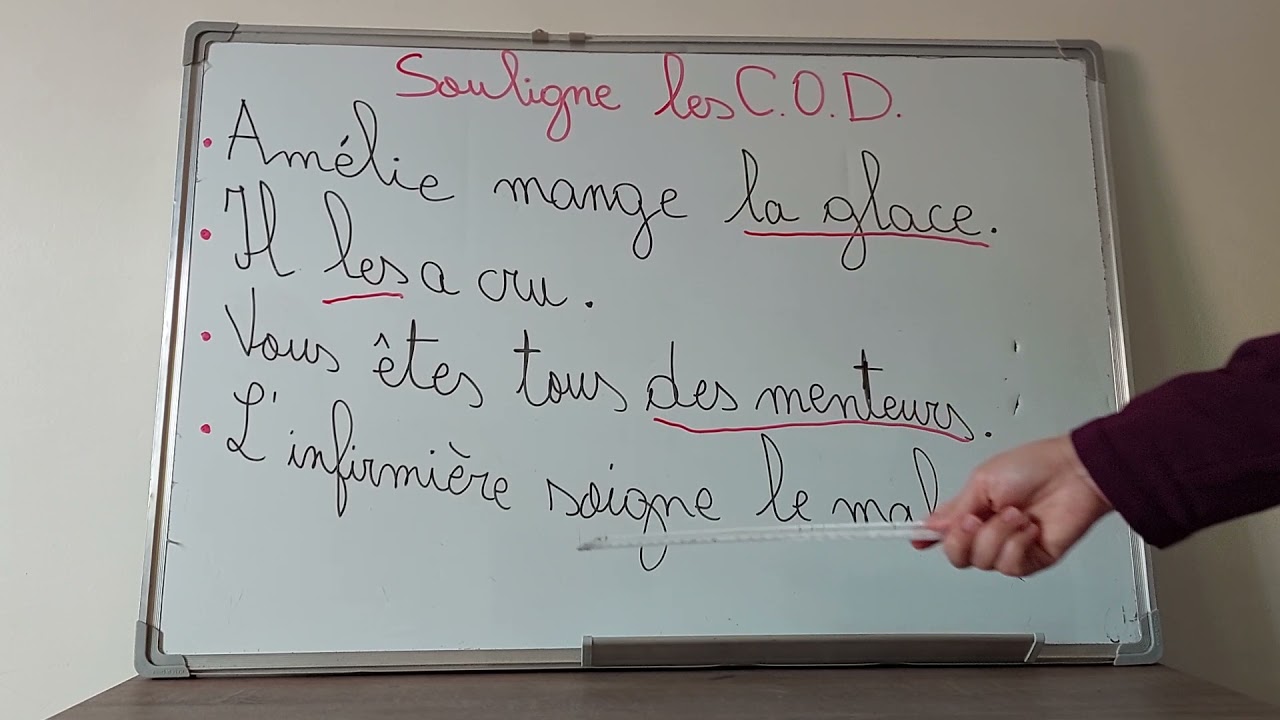 Souligne les C.O.D.
• Amélie mange la glace.
• Il les a cru.
• Vous êtes tous des menteurs.
• L'infirmière soigne le mal